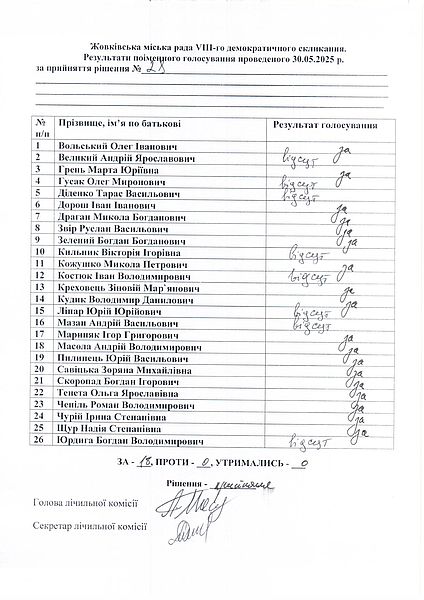 Жовківська міська рада VIII-го демократичного скликання.
Результати поіменного голосування проведеного 30.05.2025 р.
за прийняття рішення № 28
№ п/п Прізвище, ім’я по батькові Результат голосування
1 Вольський Олег Іванович за
2 Великий Андрій Ярославович відсут
3 Грень Марта Юріївна за
4 Гусак Олег Миронович відсут
5 Діденко Тарас Васильович відсут
6 Дорош Іван Іванович за
7 Драган Микола Богданович за
8 Звір Руслан Васильович за
9 Зелений Богдан Богданович за
10 Кильник Вікторія Ігорівна відсут
11 Кожушко Микола Петрович за
12 Костюк Іван Володимирович відсут
13 Креховець Зіновій Мар`янович за
14 Кудик Володимир Данилович за
15 Ліпар Юрій Юрійович відсут
16 Мазан Андрій Васильович відсут
17 Мариняк Ігор Григорович за
18 Масола Андрій Володимирович за
19 Пилипець Юрій Васильович за
20 Савіцька Зоряна Михайлівна за
21 Скоропад Богдан Ігорович за
22 Тенета Ольга Ярославівна за
23 Чепіль Роман Володимирович за
24 Чурій Ірина Степанівна за
25 Щур Надія Степанівна за
26 Юрдига Богдан Володимирович відсут
ЗА - 18, ПРОТИ - 0, УТРИМАЛИСЬ - 0
Рішення - прийняте
Голова лічильної комісії
Секретар лічильної комісії